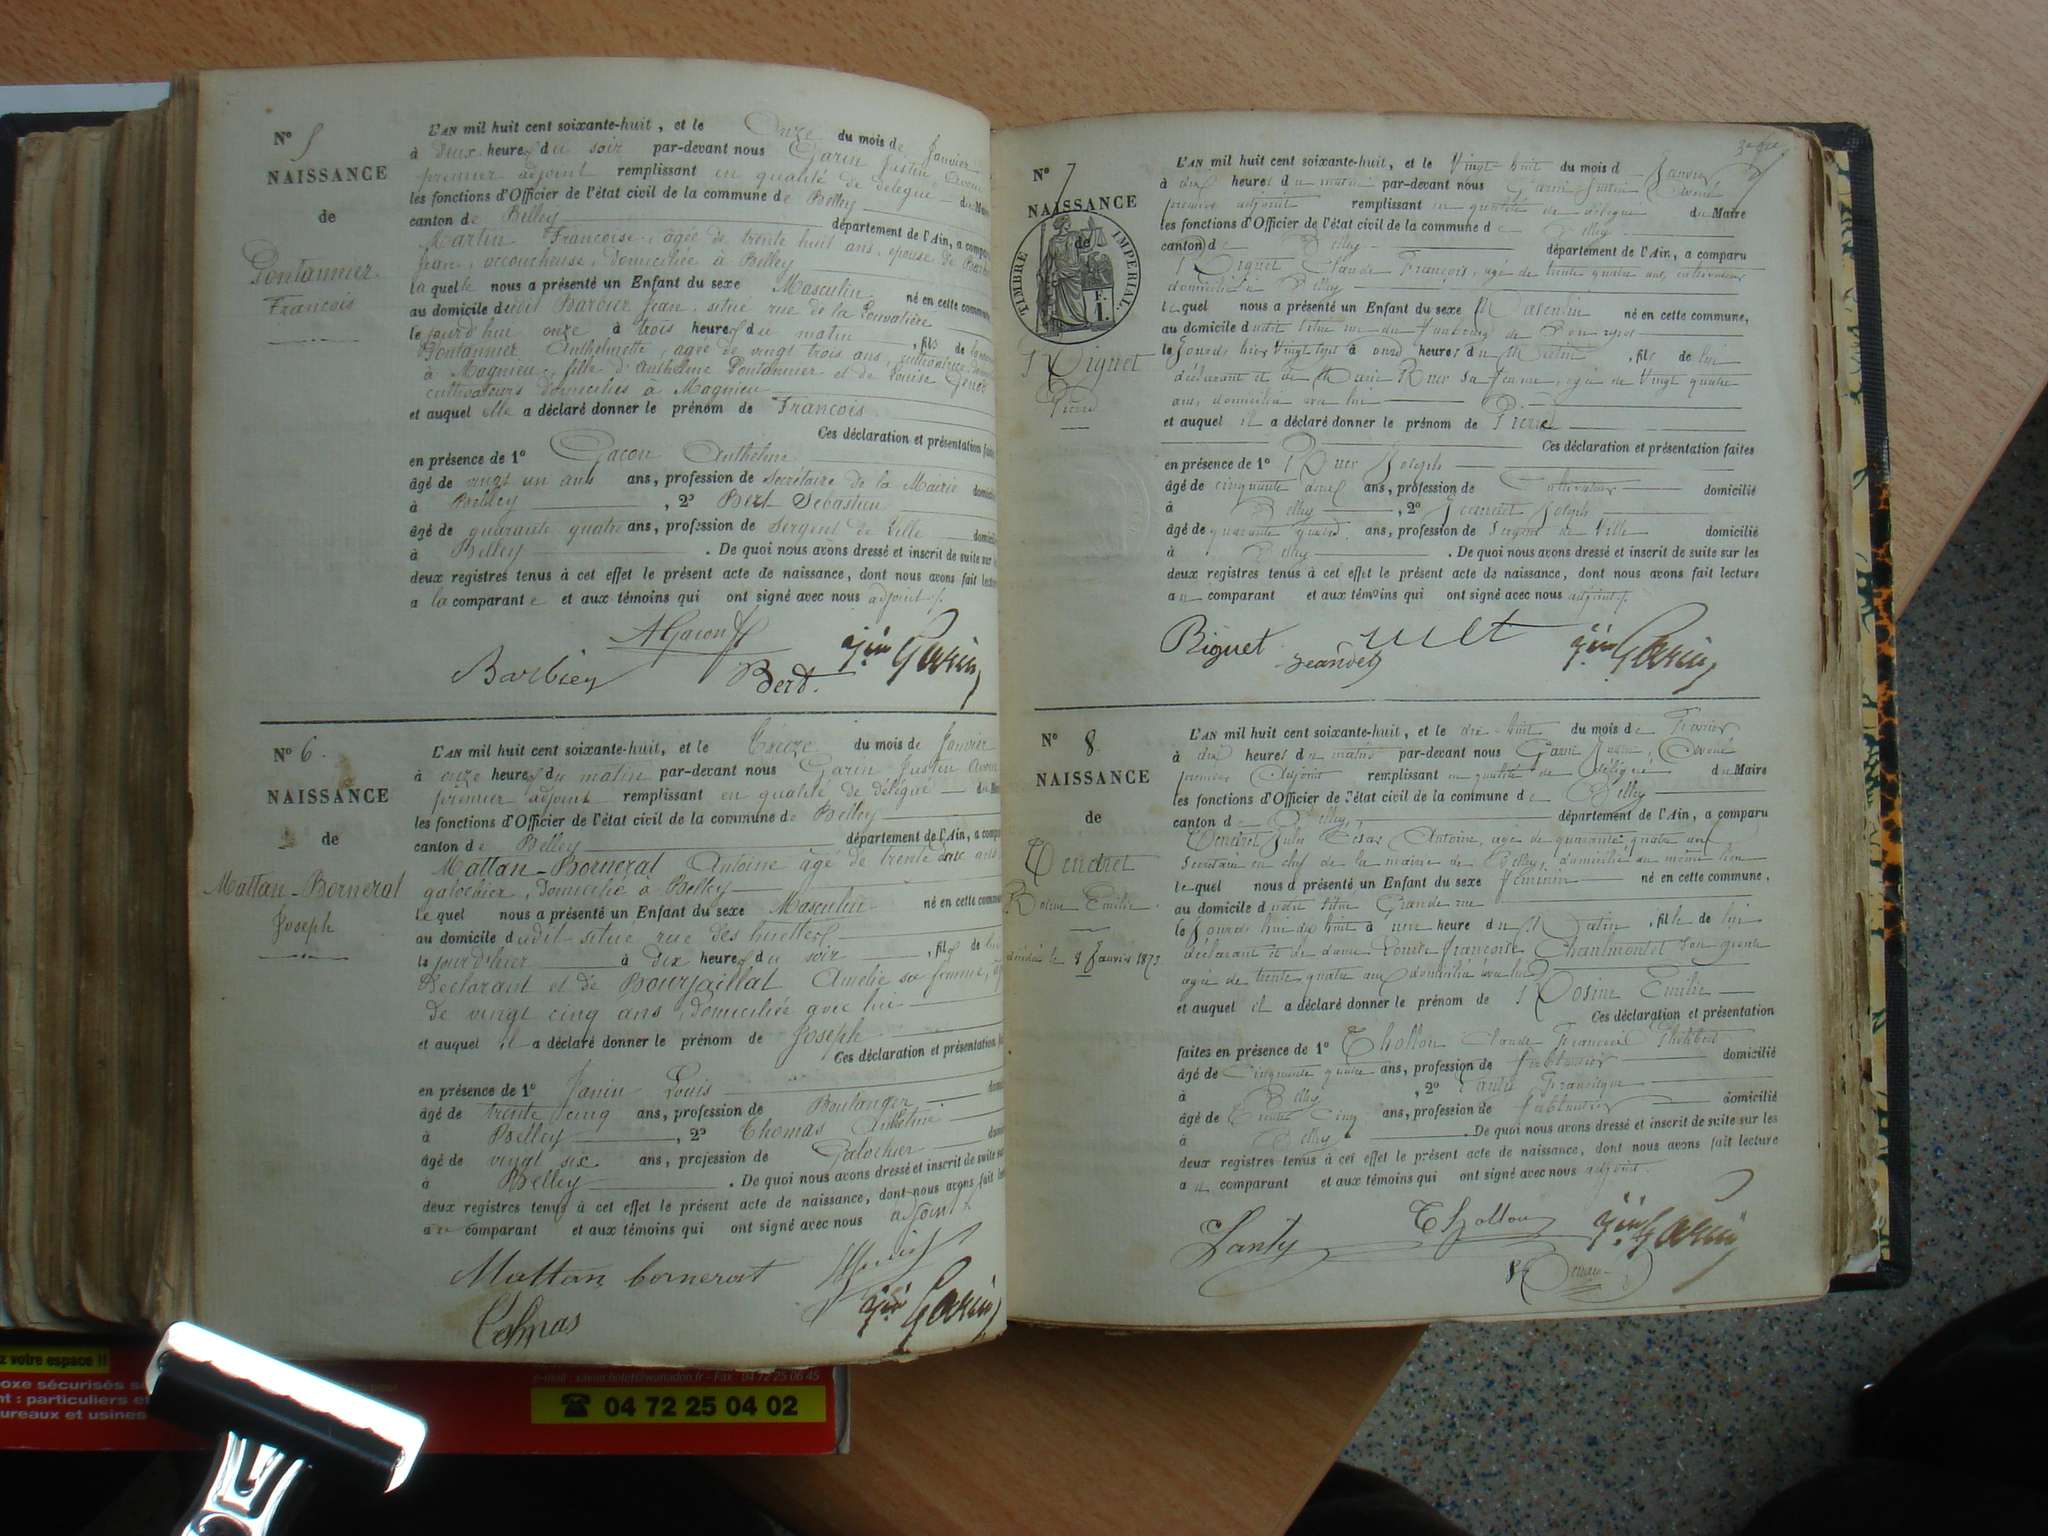 N° 5
NAISSANCE
de
Pontannier
François
L'AN mil huit cent soixante-huit, et le Onze du mois de Janvier
à deux heures du soir par-devant nous Garin Justin Avoué
premier adjoint remplissant en qualité de délégué du Maire
les fonctions d'Officier de l'état civil de la commune de Belley
canton de Belley département de l'Ain, a comparu
Martin Françoise, âgée de trente huit ans, épouse de Barbier
Jean, accoucheuse, domiciliée à Belley
laquelle nous a présenté un Enfant du sexe Masculin né en cette commune,
au domicile dudit Barbier Jean, situé rue de la Louvatière
le jourd'hui onze à trois heures du matin, fils de
Pontannier Anthelmette, agée de vingt trois ans, cultivatrice
à Magnieu, fille d'Anthelme Pontannier et de Louise
cultivateurs domiciliés à Magnieu
et auquel elle a déclaré donner le prénom de François
Ces déclaration et présentation faites
en présence de 1° Gacon Anthelme
âgé de vingt un ans ans, profession de secrétaire de la Mairie domicilié
à Belley, 2° Bert Sébastien
âgé de quarante quatre ans, profession de Sergent de Ville domicilié
à Belley. De quoi nous avons dressé et inscrit de suite sur les
deux registres tenus à cet effet le présent acte de naissance, dont nous avons fait lecture
a la comparante et aux témoins qui ont signé avec nous adjoint
AGacon
Barbier Bert. Jin Garin
N° 6.
NAISSANCE
de
Mattan-Bornerat
Joseph
L'AN mil huit cent soixante-huit, et le Treize du mois de Janvier
à onze heures du matin par-devant nous Garin Justin Avoué
premier adjoint remplissant en qualité de délégué du Maire
les fonctions d'Officier de l'état civil de la commune de Belley
canton de Belley département de l'Ain, a comparu
Mattan-Bornerat Antoine âgé de trente ans
galochier, domicilié à Belley
lequel nous a présenté un Enfant du sexe Masculin né en cette commune
au domicile dudit situé rue des huttes
le jour d'hier à dix heures du soir, fils de lui
Déclarant et de Bourjaillat Amélie sa femme,
de vingt cinq ans, domiciliée avec lui
et auquel il a déclaré donner le prénom de Joseph
Ces déclaration et présentation
en présence de 1° Janin Louis
âgé de trente cinq ans, profession de Boulanger
à Belley, 2° Thomas Anthelme
âgé de vingt six ans, profession de Galochier
à Belley. De quoi nous avons dressé et inscrit de suite sur
deux registres tenus à cet effet le présent acte de naissance, dont nous avons fait
au comparant et aux témoins qui ont signé avec nous adjoint
Mattan bornerat
Jin Garin
N° 7
NAISSANCE
de
TIMBRE IMPERIAL
F.
1.
Biguet
Pierre
L'AN mil huit cent soixante-huit, et le Vingt-huit du mois d Janvier
à dix heures du matin par-devant nous Garin Justin Avoué
premier adjoint remplissant en qualité de délégué du Maire
les fonctions d'Officier de l'état civil de la commune de Belley
canton de Belley département de l'Ain, a comparu
Biguet Claude François, agé de trente quatre ans, cultivateur
domicilié à Belley
lequel nous a présenté un Enfant du sexe Masculin né en cette commune,
au domicile dudit situé rue du faubourg de
le jourd'hier Vingt sept à onze heures du Matin, fils de lui
déclarant et de Marie Ruet sa femme, agée de Vingt quatre
ans, domiciliée avec lui
et auquel il a déclaré donner le prénom de Pierre
Ces déclaration et présentation faites
en présence de 1° Ruet Joseph
âgé de cinquante ans, profession de Cultivateur domicilié
à Belley, 2° Jeandet Joseph
âgé de quarante quatre ans, profession de Sergent de Ville domicilié
à Belley. De quoi nous avons dressé et inscrit de suite sur les
deux registres tenus à cet effet le présent acte de naissance, dont nous avons fait lecture
au comparant et aux témoins qui ont signé avec nous adjoint
Biguet Jeandet ruet Jin Garin
N° 8
NAISSANCE
de
Dendret
Rosine Emilie
décédée le 8 Janvier 1873
L'AN mil huit cent soixante-huit, et le dix-huit du mois de Janvier
à dix heures du matin par-devant nous Garin Justin, Avoué
premier Adjoint remplissant en qualité de délégué du Maire
les fonctions d'Officier de l'état civil de la commune de Belley
canton de Belley, département de l'Ain, a comparu
Dendret Jules César Antoine, agé de quarante quatre ans
Secrétaire en chef de la mairie de Belley, domicilié au même lieu
lequel nous a présenté un Enfant du sexe féminin né en cette commune,
au domicile dudit situé Grande rue
le Jourd'hui dix huit à une heure du Matin, fille de lui
déclarant et de dame Louise françoise Chaulmontet son épouse
agée de trente quatre ans domiciliée avec lui
et auquel il a déclaré donner le prénom de Rosine Emilie
Ces déclaration et présentation
faites en présence de 1° Thollon Claude François Philibert
âgé de Cinquante quatre ans, profession de ferblantier domicilié
à Belley, 2° Lanty Francisque
âgé de Trente Cinq ans, profession de ferblantier domicilié
à Belley. De quoi nous avons dressé et inscrit de suite sur les
deux registres tenus à cet effet le présent acte de naissance, dont nous avons fait lecture
au comparant et aux témoins qui ont signé avec nous adjoint.
Lanty Thollon Jin Garin
z votre espace !!
oxe sécurisés
nt : particuliers et
ureaux et usines
Fax : 04 72 25 06 45
☎ 04 72 25 04 02